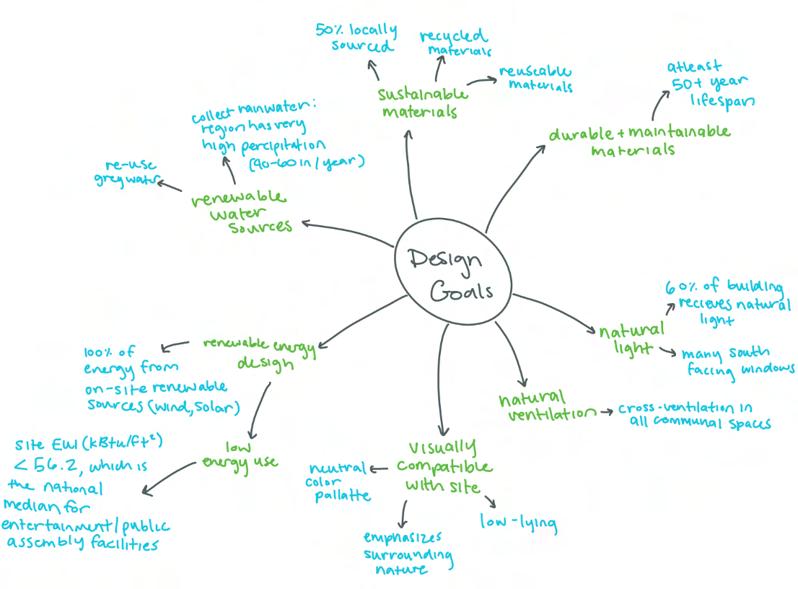 50% locally
sourced
recycled
materials
reuseable
materials
sustainable
materials
atleast
50+ year
lifespan
durable + maintainable
materials
collect rainwater:
region has very
high percipitation
(40-60 in/year)
re-use
greywater
renewable
water
sources
Design
Goals
60% of building
recieves natural
light
natural
light
many south
facing windows
natural
ventilation
cross-ventilation in
all communal spaces
renewable energy
design
100% of
energy from
on-site renewable
sources (wind, solar)
low
energy use
site EUI (kBtu/ft²)
< 56.2, which is
the national
median for
entertainment/public
assembly facilities
visually
compatible
with site
neutral
color
pallatte
emphasizes
surrounding
nature
low-lying